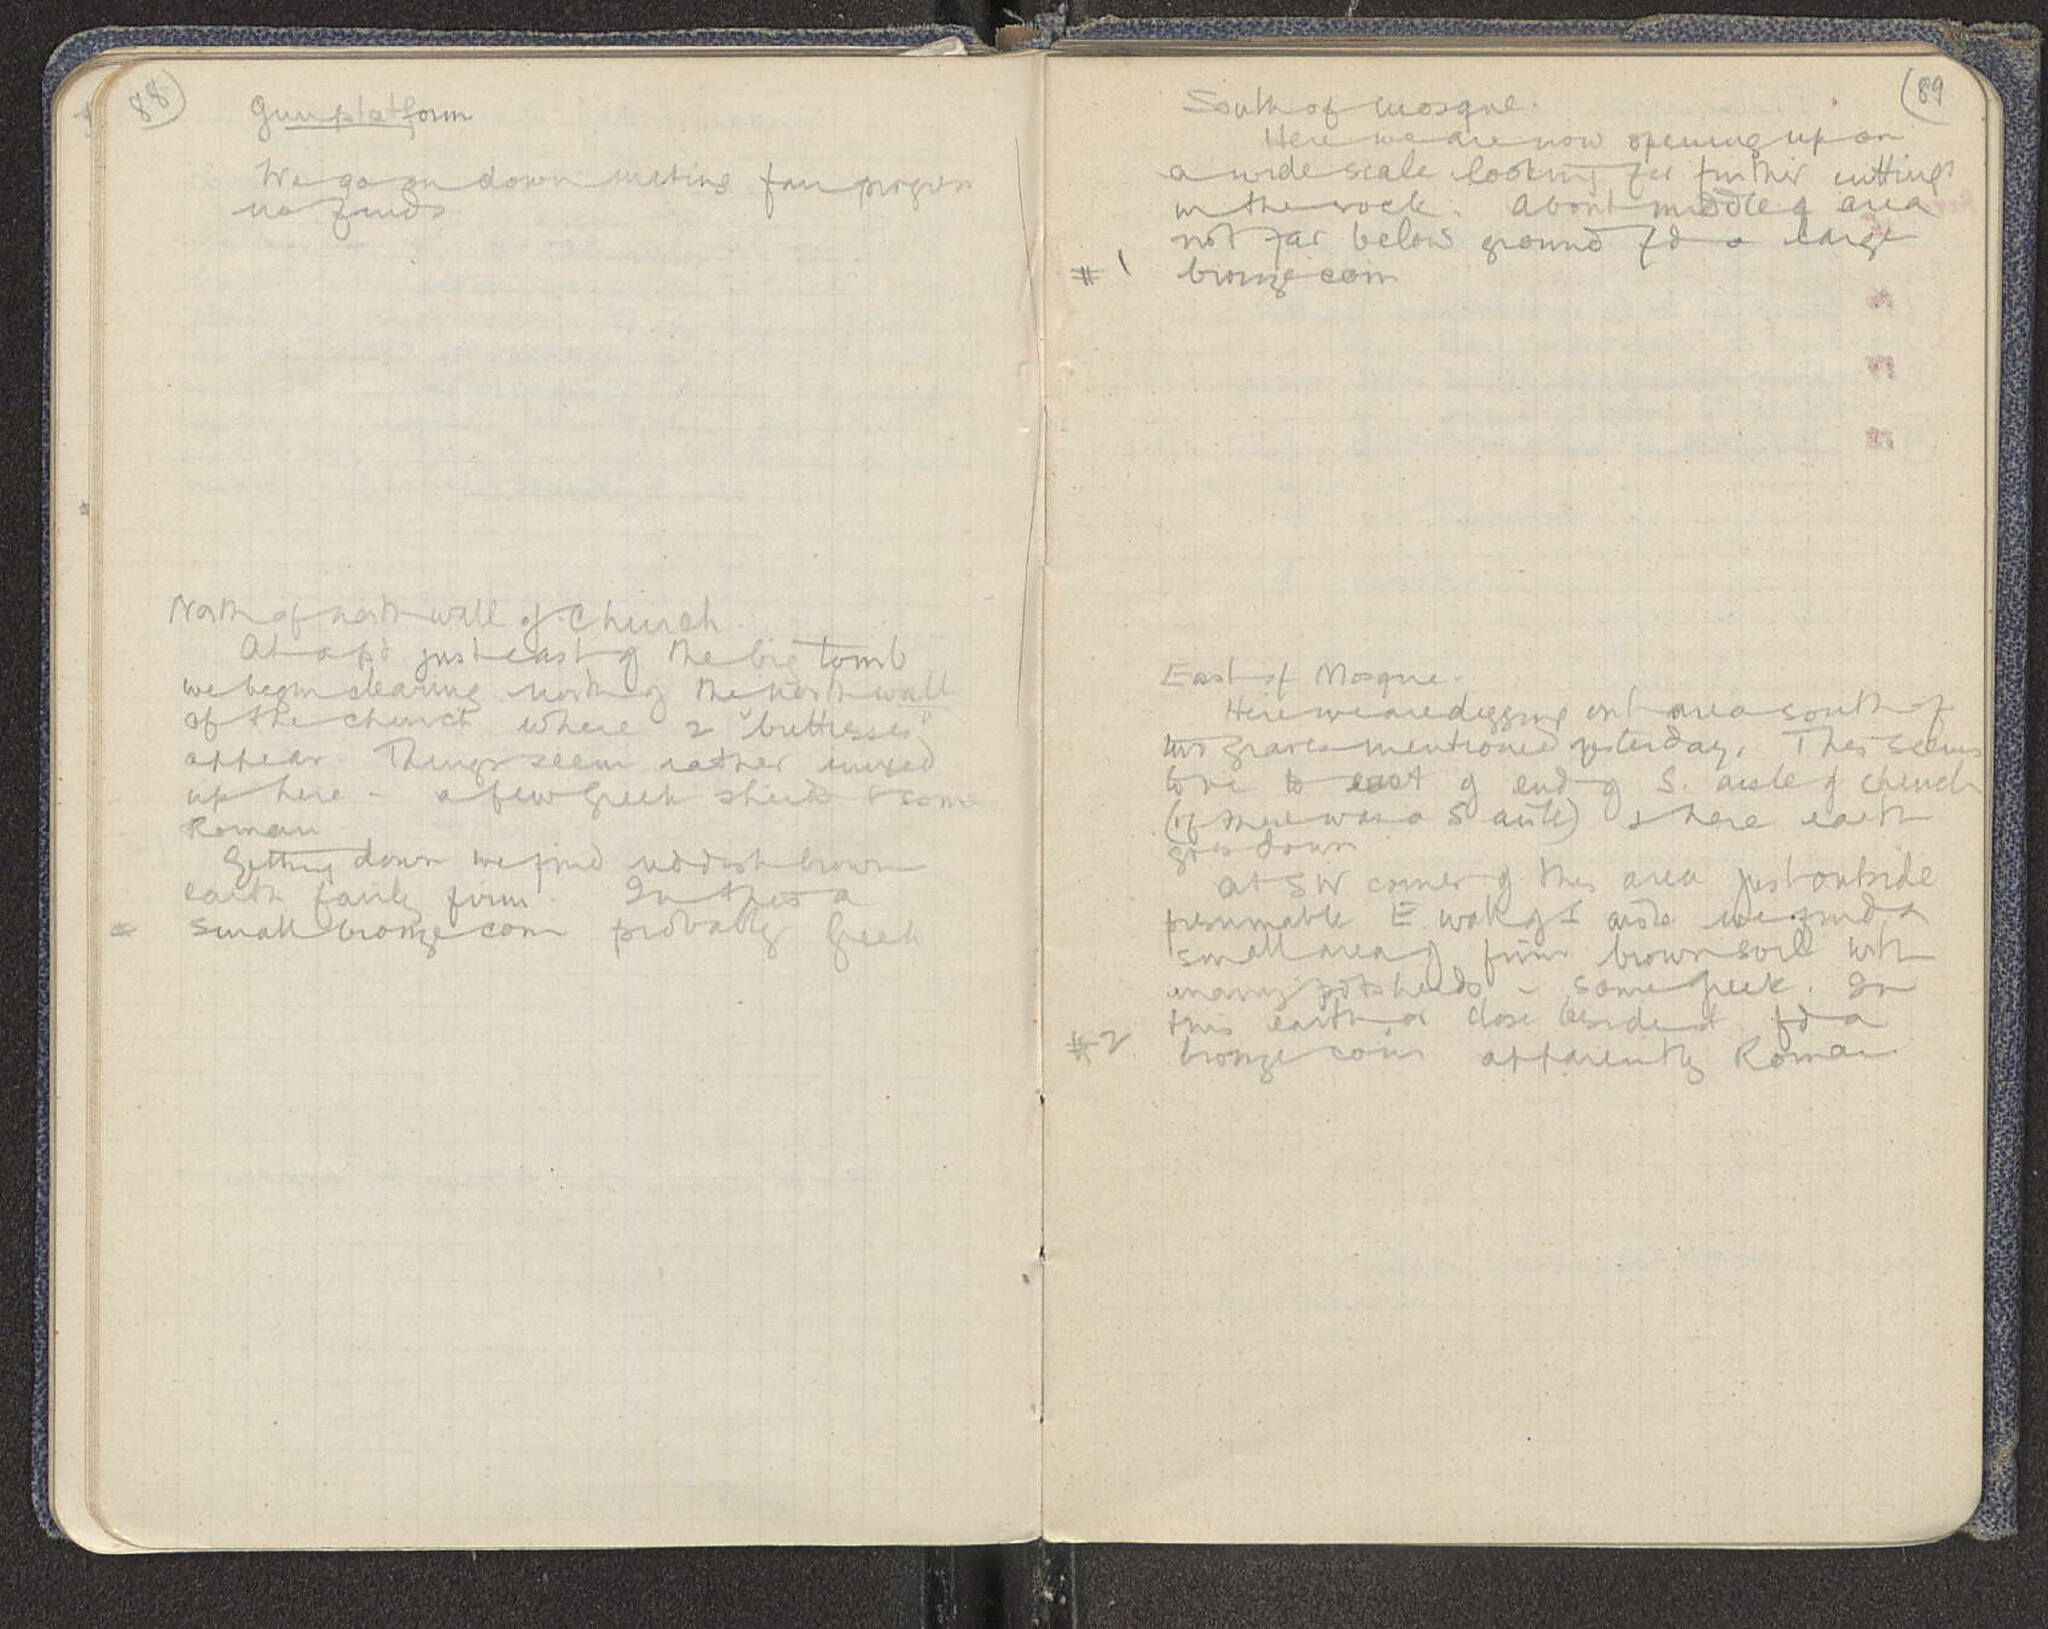 88
Gun platform
We go on down making fair progress
no finds
North of north wall of Church.
At a pt just east of the big tomb
we begin clearing north of the north wall
of the church where 2 "buttresses"
appear. Things seem rather mixed
up here - a few Greek sherds & some
Roman
Getting down we find reddish brown
earth fairly firm. In this a
* small bronze coin probably Greek
89
South of Mosque.
Here we are now opening up on
a wide scale looking for further cuttings
in the rock. About middle of area
not far below ground fd a large
# 1 bronze coin
East of Mosque.
Here we are digging out area south of
two graves mentioned yesterday. This seems
to be to east of end of S. aisle of church
(if there was a S aisle) & here earth
goes down
At SW corner of this area just outside
presumable E. wall of S aisle we find a
small area of firm brown soil with
many potsherds - some Greek. In
this earth or close beside it fd a
# 2 bronze coin apparently Roman